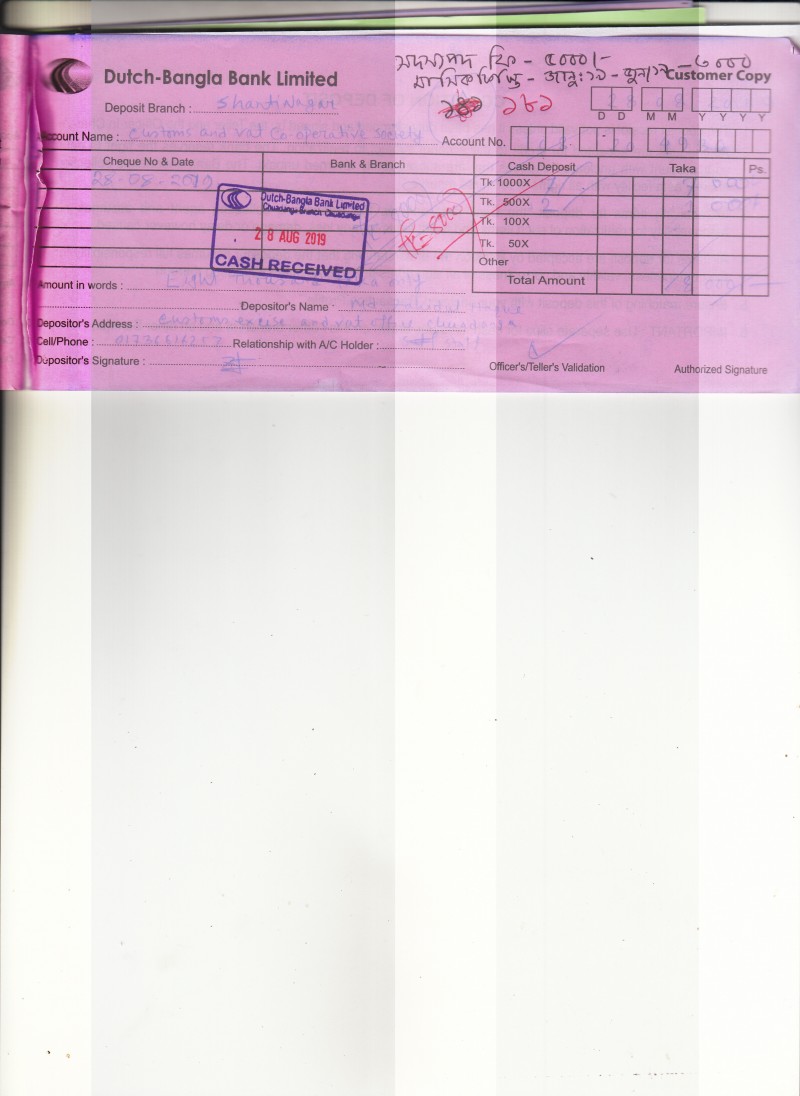 সদস্যপদ ফি - ৫০০০/-
মাসিক কিস্তি - জানু:১৯ - জুন/১৯ - ৩০০০
Dutch-Bangla Bank Limited
Customer Copy
২৮১
Deposit Branch : Shantinagar
D D M M Y Y Y Y
Account Name : Customs and vat Co-operative society
Account No.
Cheque No & Date Bank & Branch Cash Deposit Taka Ps.
28-08-2019
Tk. 1000X
Tk. 500X 2
Tk. 100X
Tk. 50X
Other
Total Amount 8000/-
Tk= 8000/
Dutch-Bangla Bank Limited
Chuadanga Branch, Chuadanga
28 AUG 2019
CASH RECEIVED
Amount in words : Eight thousand only
Depositor's Name Md
Depositor's Address : Customs excise and vat office chuadanga
Cell/Phone : Relationship with A/C Holder :
Depositor's Signature :
Officer's/Teller's Validation
Authorized Signature